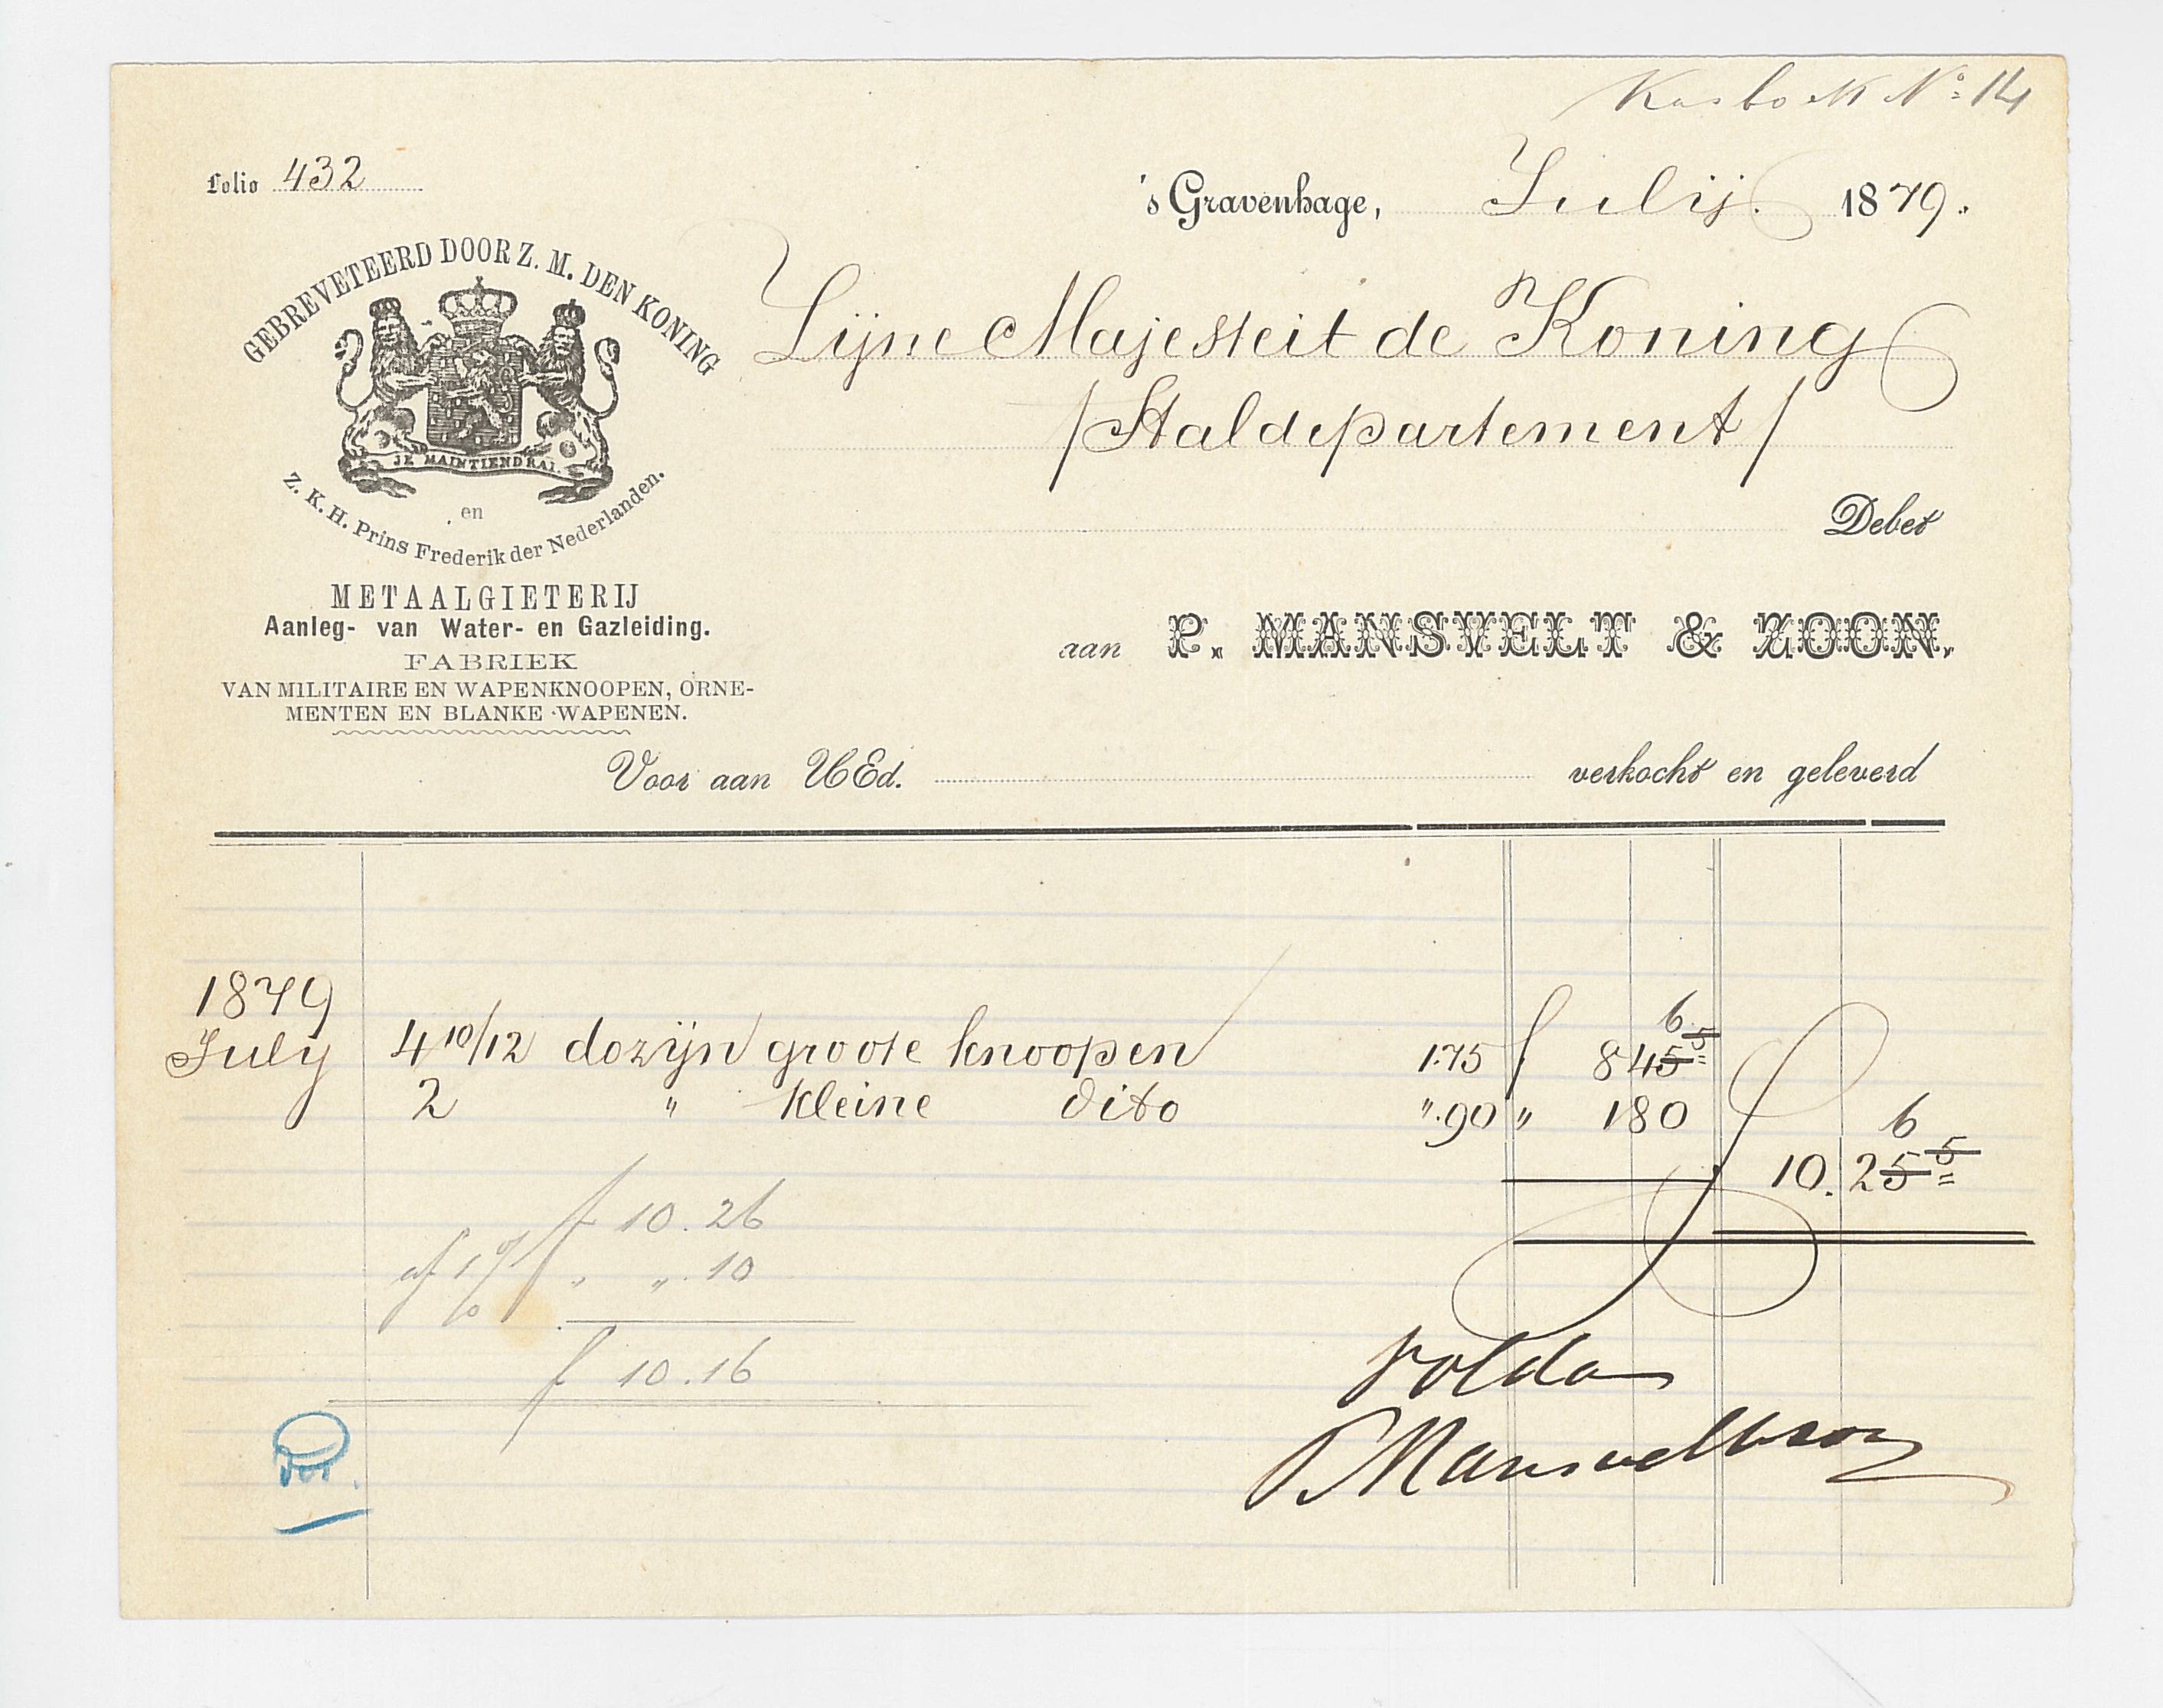 Kasboek No 14
Folio 432
's Gravenhage, Julij. 1879.
GEBREVETEERD DOOR Z. M. DEN KONING
JE MAINTIENDRAI.
en
Z. K. H. Prins Frederik der Nederlanden.
Zijne Majesteit de Koning
/Staldepartement/
Debet
METAALGIETERIJ
Aanleg- van Water- en Gazleiding.
FABRIEK
VAN MILITAIRE EN WAPENKNOOPEN, ORNE-
MENTEN EN BLANKE WAPENEN.
aan P. MANSVELT & ZOON.
Voor aan UEd. verkocht en geleverd
1879
July 4 10/12 dozijn groote knoopen 1.75 f 8 45 5 6
2 " kleine dito ".90 " 1 80
10. 25 5 6
f 10.26
af 1 % " ". 10
f 10.16
voldaan
P Mansvelt & zoon